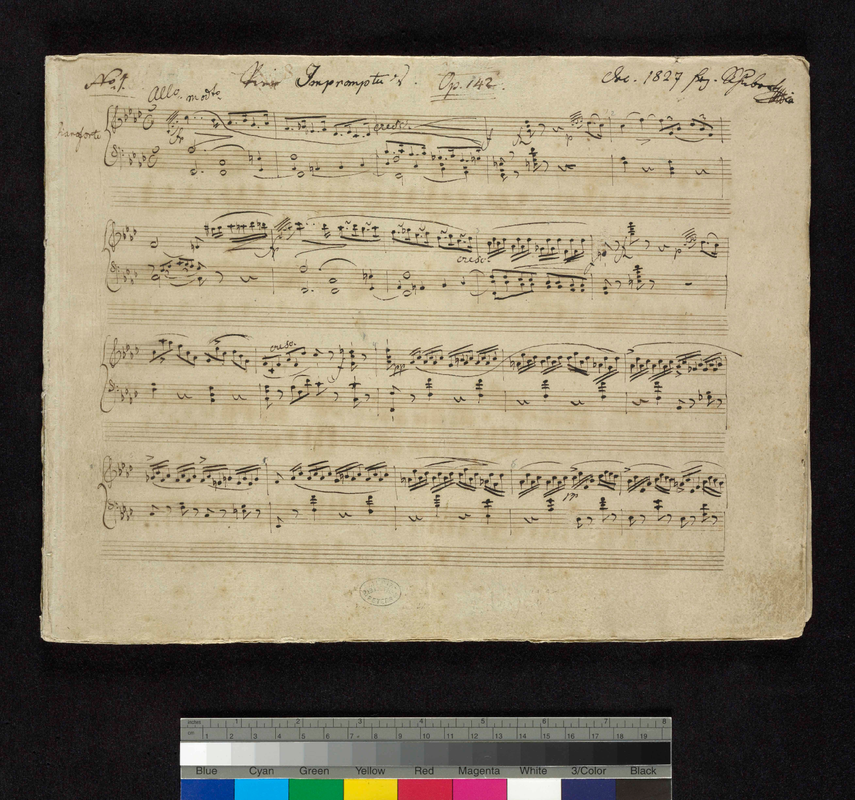 No. 1. Vier Impromptu's. Op. 142. Dec. 1827 Frz. Schubert
Allo. modto
Pianoforte
cresc.
cresc.
cresc.
pp
inches 1 2 3 4 5 6 7 8
cm 1 2 3 4 5 6 7 8 9 10 11 12 13 14 15 16 17 18 19
Blue Cyan Green Yellow Red Magenta White 3/Color Black